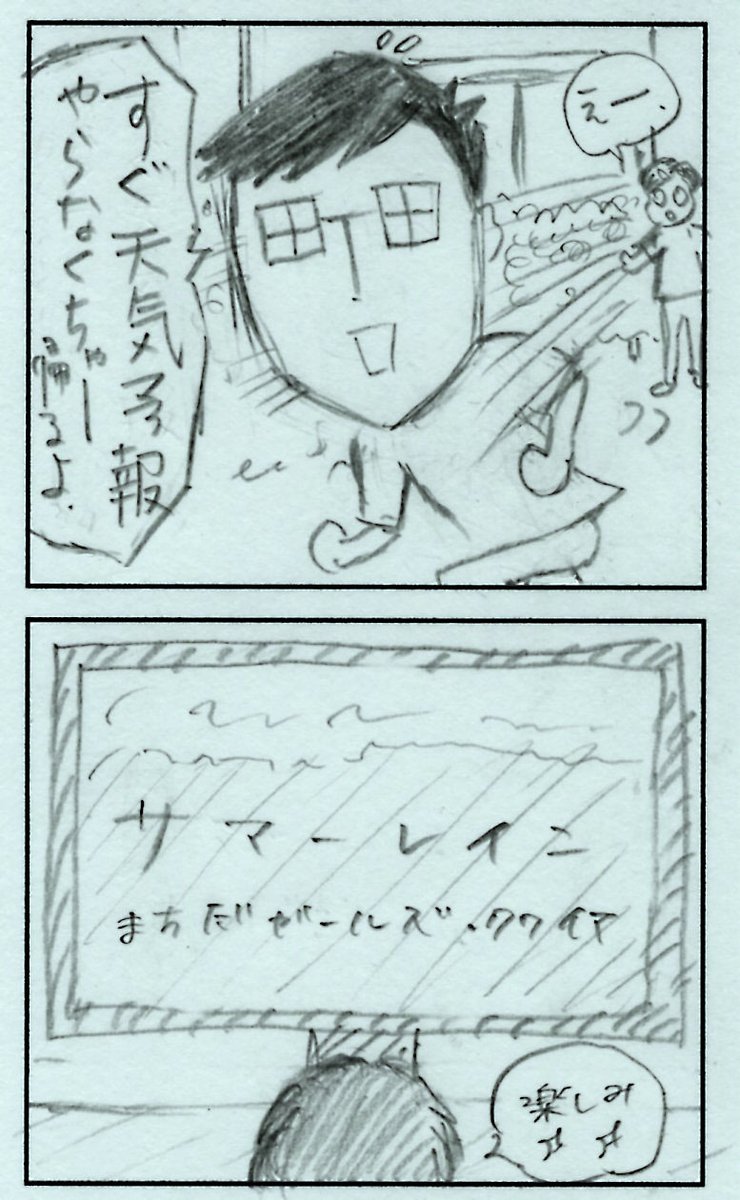 えー.
すぐ天気予報
やらなくちゃー
帰るよ.
サマーレイン
まちだガールズ・クワイア
楽しみ